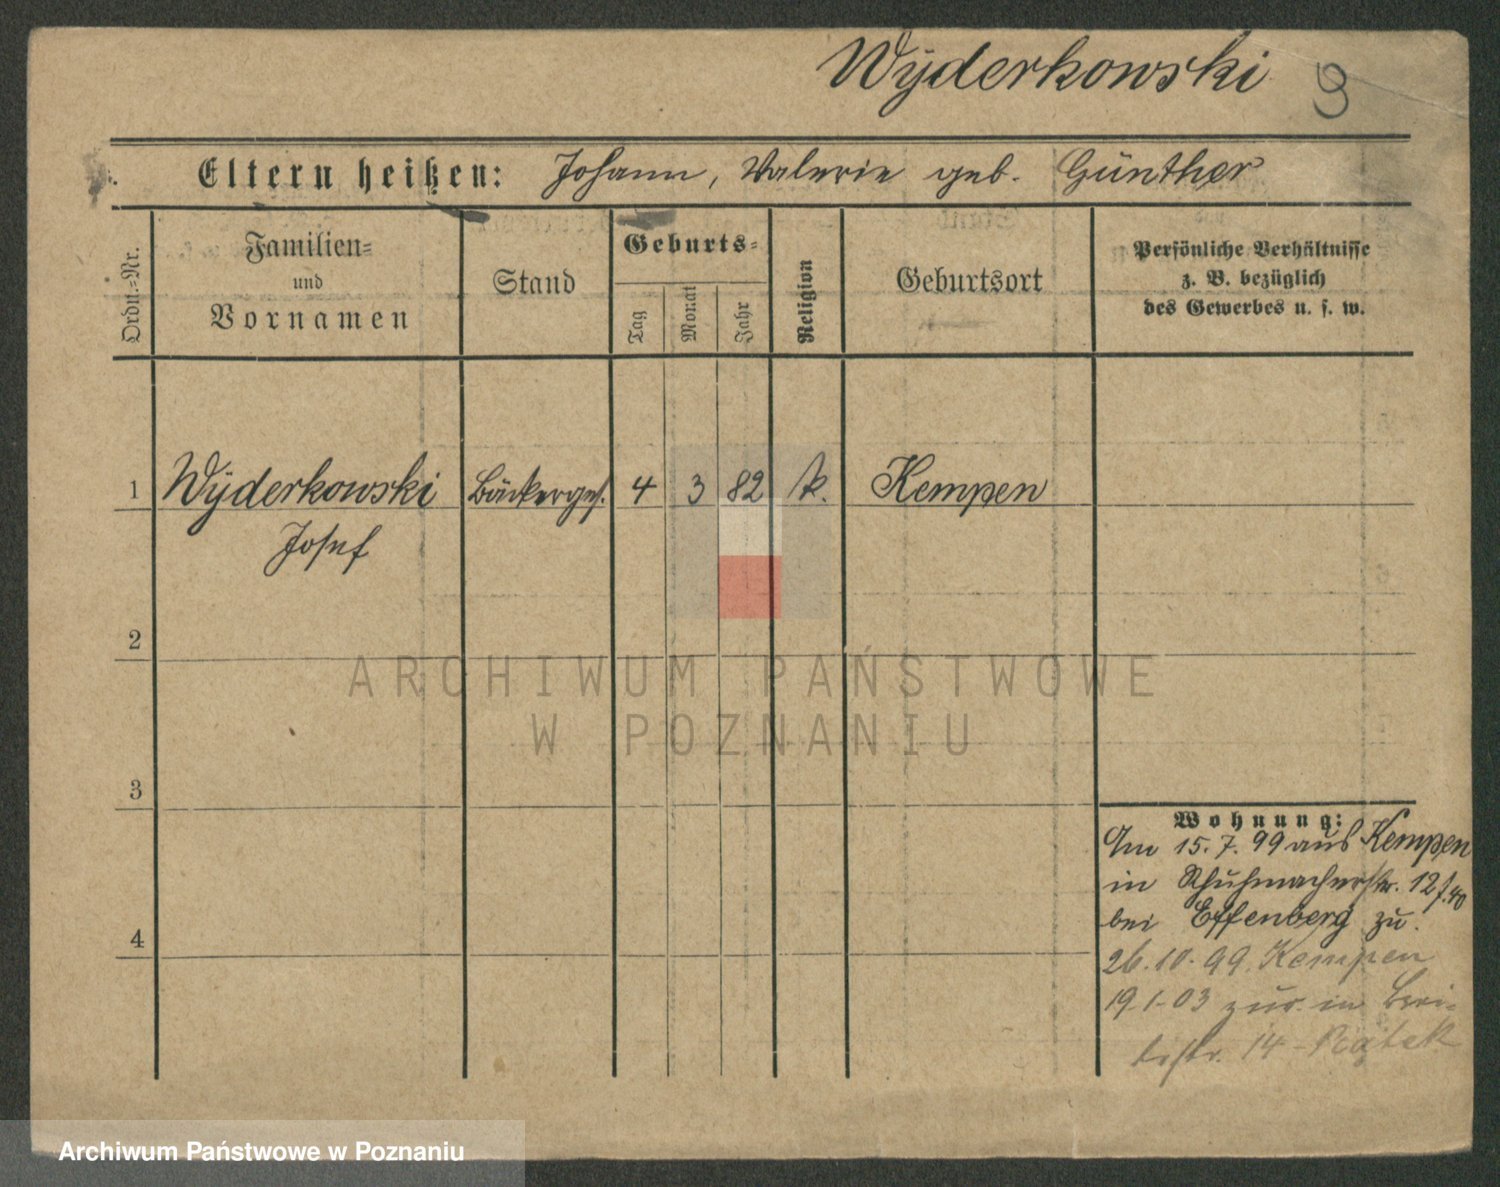 Wÿderkowski 3
Eltern heißen: Johann, Valerie geb. Günther
Ordn.-Nr.
Familien-
und
Vornamen
Stand
Geburts-
Tag
Monat
Jahr
Religion
Geburtsort
Persönliche Verhältnisse
z. B. bezüglich
des Gewerbes u. s. w.
1 Wÿderkowski Bäckerges. 4 3 82 k. Kempen
Josef
2
3
4
Wohnung:
Am 15.7.99 aus Kempen
in Schuhmacherstr. 12
bei Effenberg zu.
26.10.99. Kempen
19.1.03 zur. in
14 - Ratak
ARCHIWUM PAŃSTWOWE
W POZNANIU
Archiwum Państwowe w Poznaniu